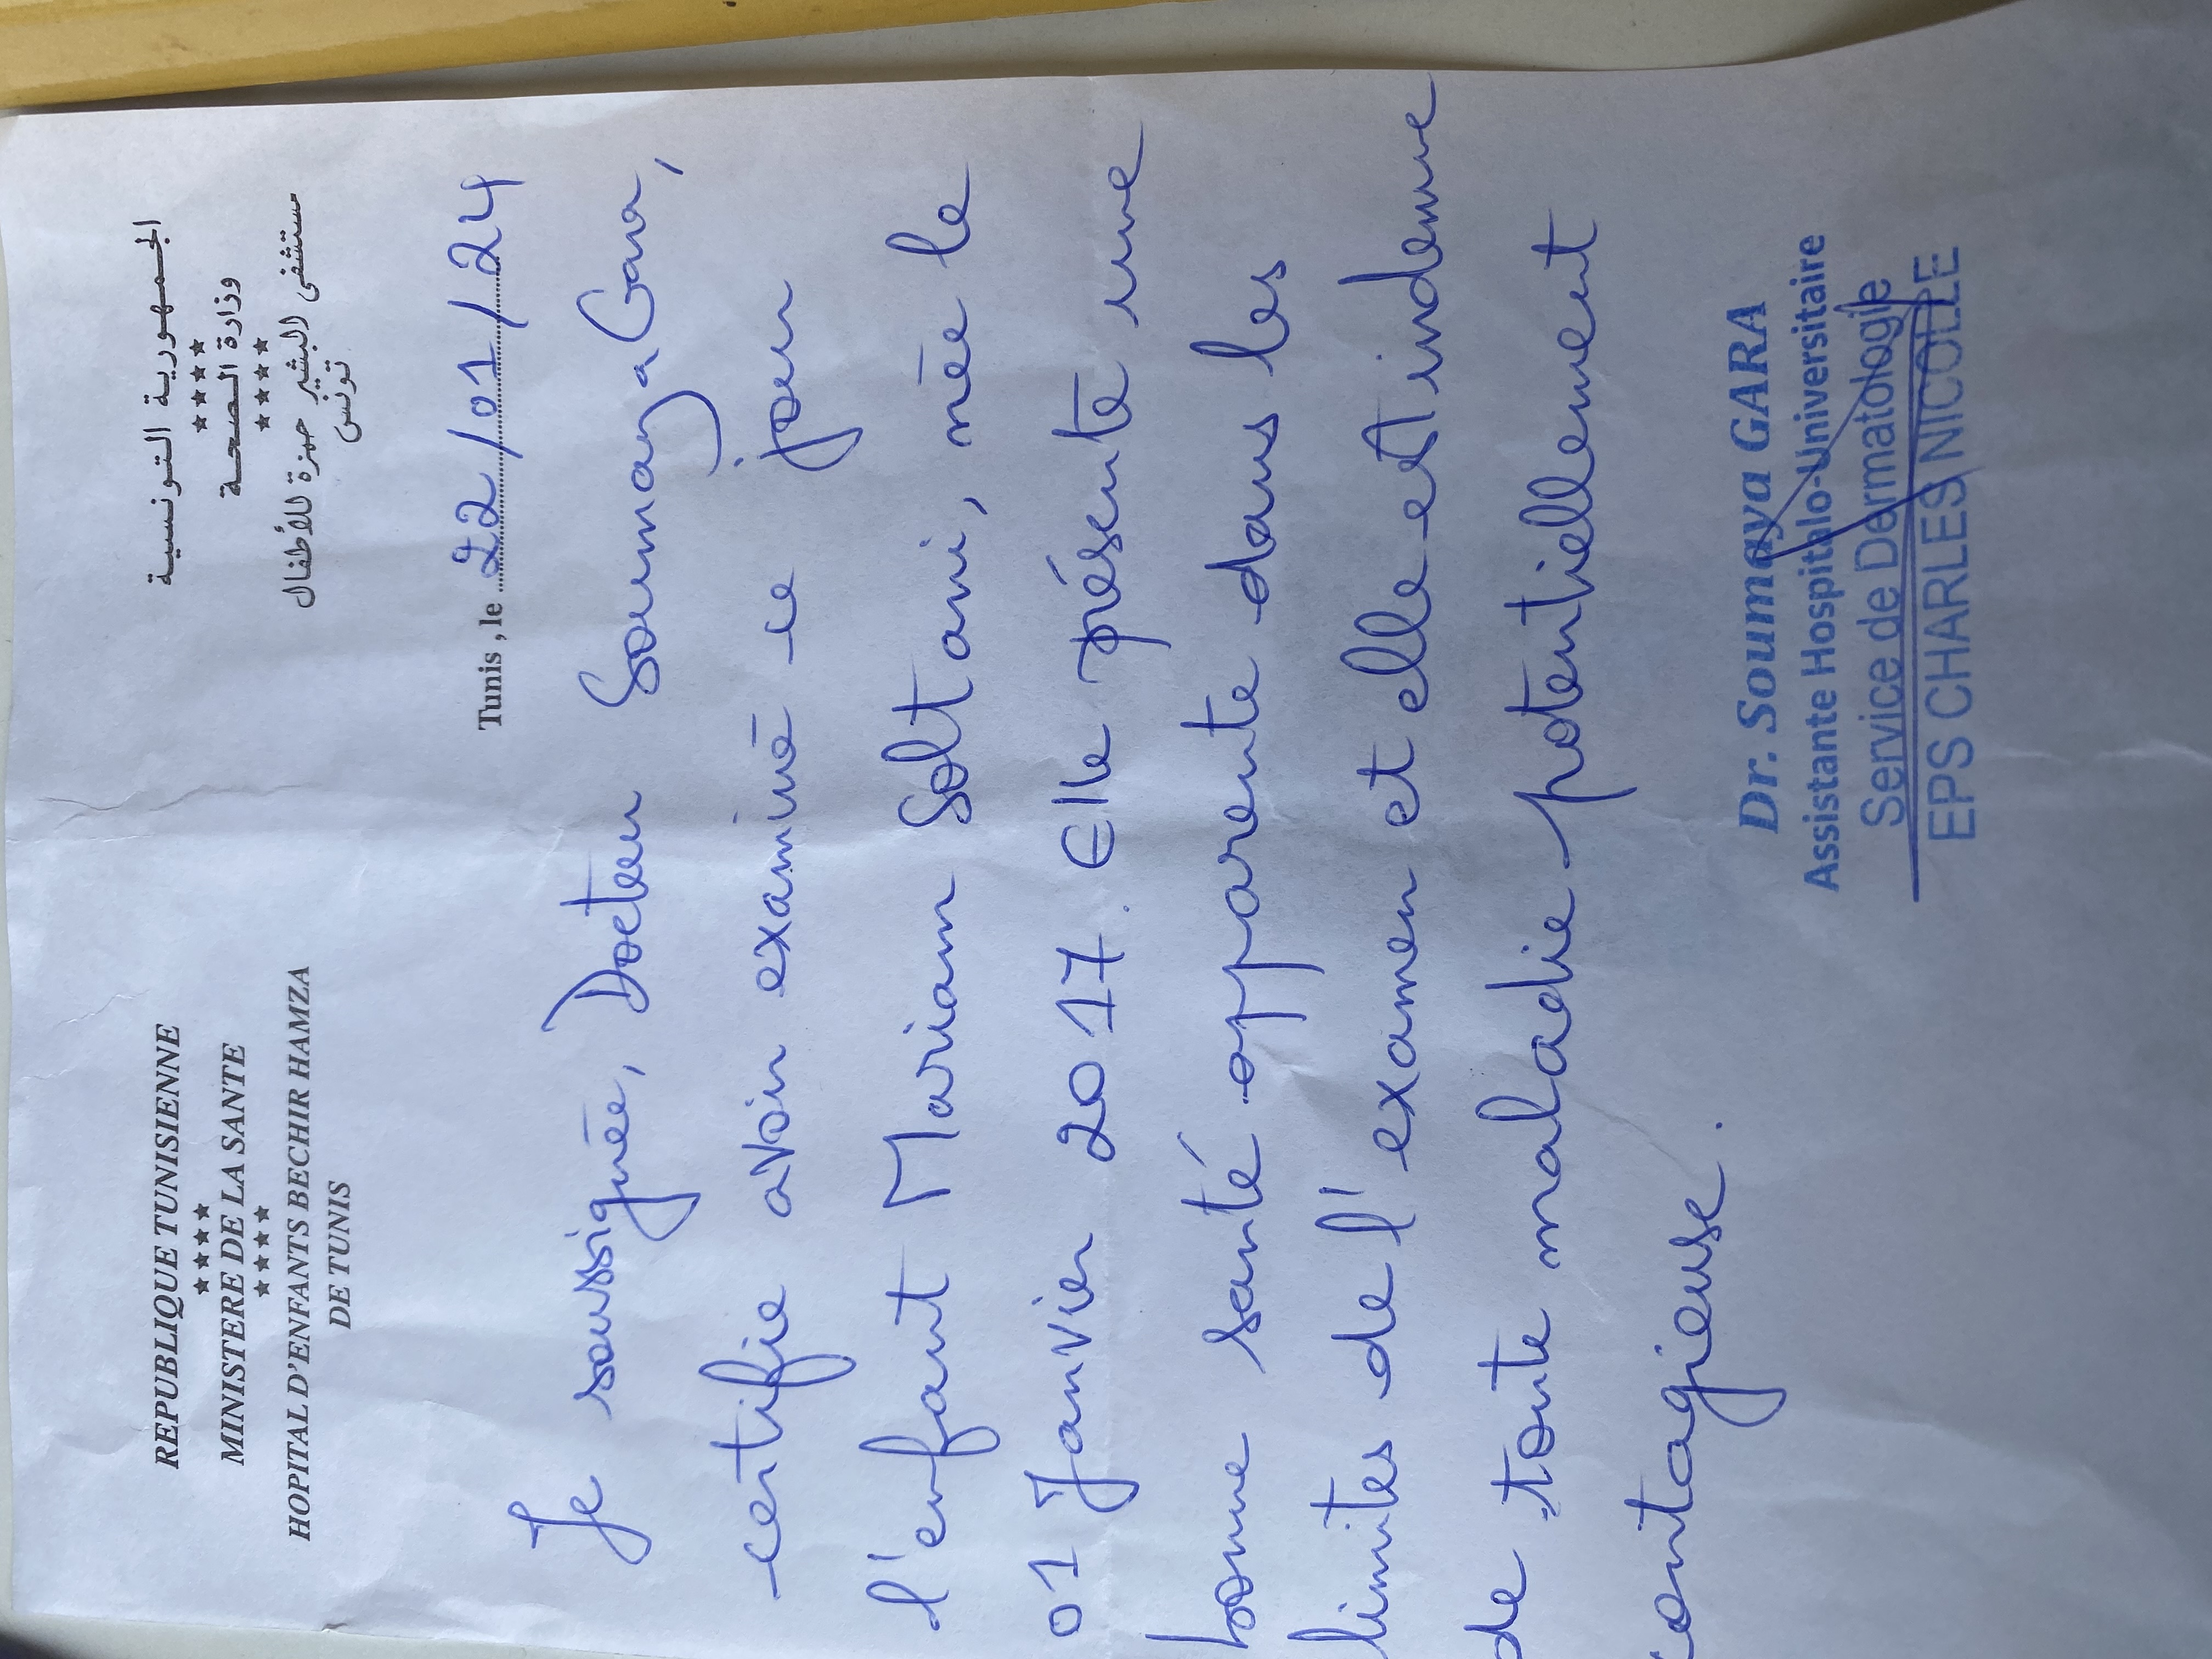 REPUBLIQUE TUNISIENNE
★★★★
MINISTERE DE LA SANTE
★★★★
HOPITAL D'ENFANTS BECHIR HAMZA
DE TUNIS
الجمهورية التونسية
★★★★
وزارة الصحة
★★★★
مستشفى البشير حمزة للأطفال
تونس
Tunis , le 22/01/24
Je soussignée, Docteur Soumaya Gara,
certifie avoir examiné ce jour
l'enfant Mariam Soltani, née le
01 Janvier 2017. Elle présente une
bonne santé apparente dans les
limites de l'examen et elle est indemne
de toute maladie potentiellement
contagieuse.
Dr. Soumaya GARA
Assistante Hospitalo-Universitaire
Service de Dermatologie
EPS CHARLES NICOLLE